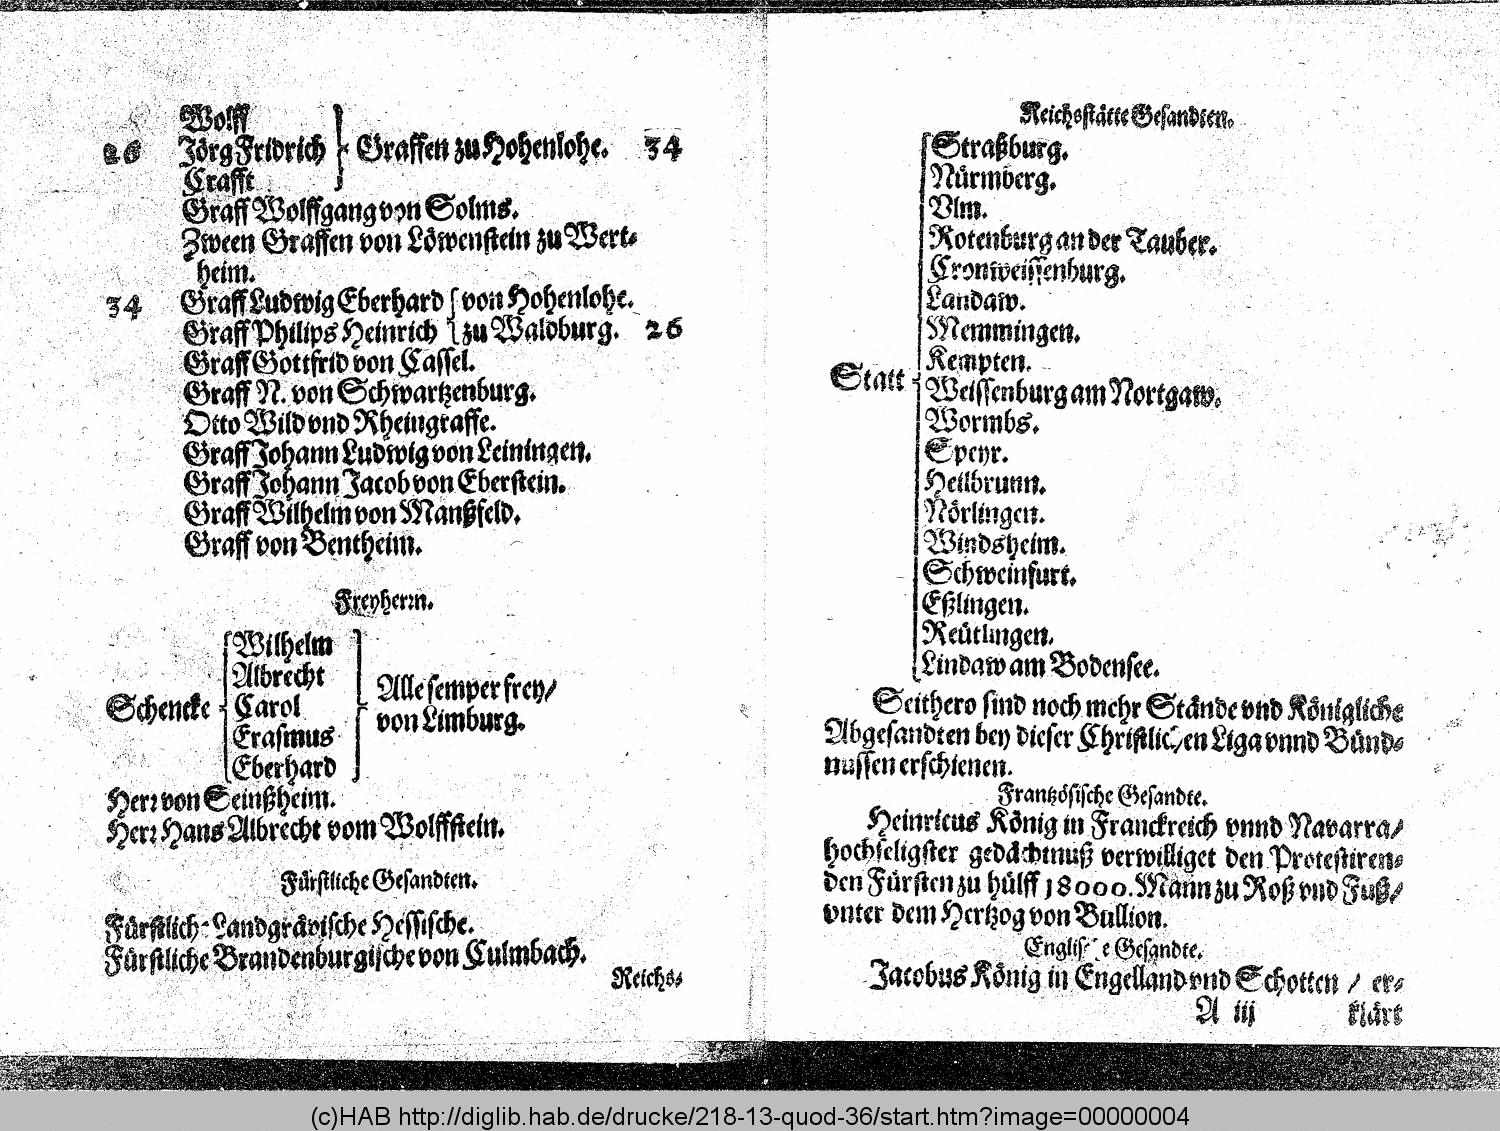 Wolff
26 Jörg Fridrich } Graffen zu Hohenlohe. 34
Crafft
Graff Wolffgang von Solms.
Zween Graffen von Löwenstein zu Wert⸗
heim.
34 Graff Ludwig Eberhard { von Hohenlohe.
Graff Philips Heinrich { zu Waldburg. 26
Graff Gottfrid von Cassel.
Graff N. von Schwartzenburg.
Otto Wild vnd Rheingraffe.
Graff Johann Ludwig von Leiningen.
Graff Johann Jacob von Eberstein.
Graff Wilhelm von Manßfeld.
Graff von Bentheim.
Freyherꝛn.
Wilhelm
Albrecht
Schencke { Carol } Alle semper frey/
von Limburg.
Erasmus
Eberhard
Herꝛ von Seinßheim.
Herꝛ Hans Albrecht vom Wolffstein.
Fürstliche Gesandten.
Fürstlich⸗Landgrävische Hessische.
Fürstliche Brandenburgische von Culmbach.
Reichs⸗
Reichsstätte Gesandten.
Straßburg.
Nürmberg.
Vlm.
Rotenburg an der Tauber.
Cronweissenburg.
Landaw.
Memmingen.
Kempten.
Statt {
Weissenburg am Nortgaw.
Wormbs.
Speyr.
Heilbrunn.
Nörlingen.
Windsheim.
Schweinfurt.
Eßlingen.
Reütlingen.
Lindaw am Bodensee.
Seithero sind noch mehr Stände vnd Königliche
Abgesandten bey dieser Christlichen Liga vnnd Bünd⸗
nussen erschienen.
Frantzösische Gesandte.
Heinricus König in Franckreich vnnd Navarra/
hochseligster gedächtnuß verwilliget den Protestiren⸗
den Fürsten zu hülff 18000. Mann zu Roß vnd Fuß/
vnter dem Hertzog von Bullion.
Englische Gesandte.
Jacobus König in Engelland vnd Schotten / er⸗
A iij klärt
(c)HAB http://diglib.hab.de/drucke/218-13-quod-36/start.htm?image=00000004